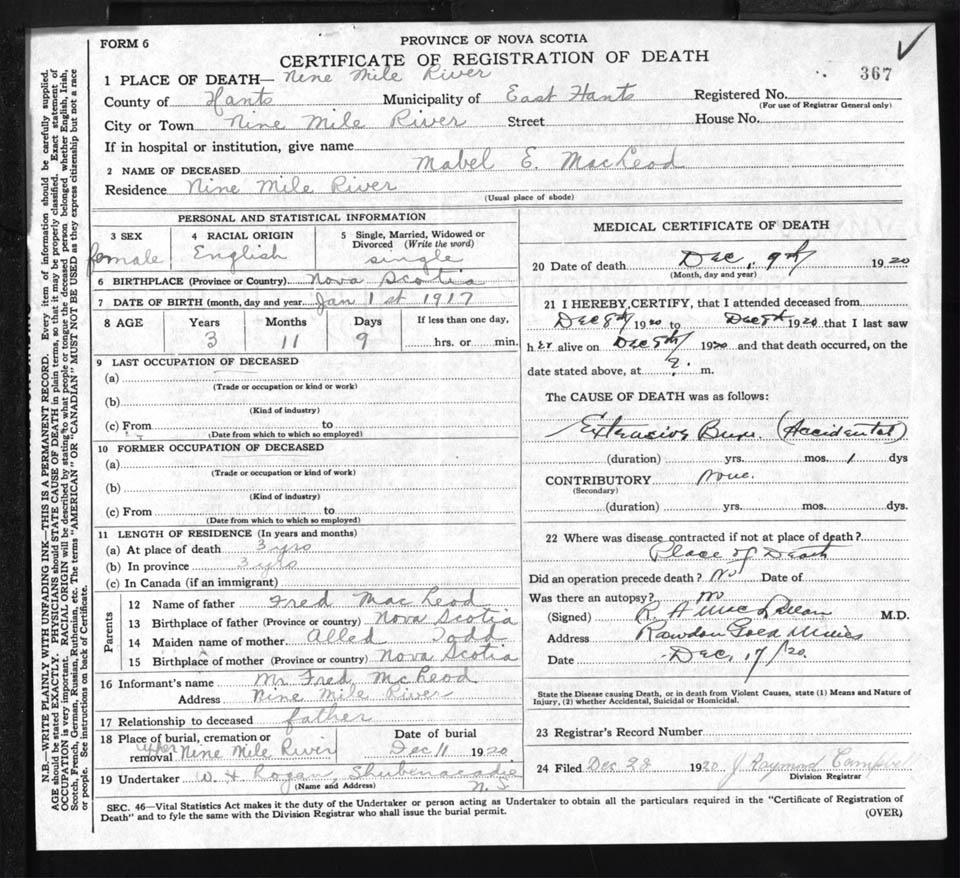 FORM 6
PROVINCE OF NOVA SCOTIA
CERTIFICATE OF REGISTRATION OF DEATH
367
1 PLACE OF DEATH— Nine Mile River
County of Hants Municipality of East Hants Registered No.
(For use of Registrar General only)
City or Town Nine Mile River Street House No.
If in hospital or institution, give name
2 NAME OF DECEASED Mabel E. MacLeod
Residence Nine Mile River
(Usual place of abode)
PERSONAL AND STATISTICAL INFORMATION
3 SEX 4 RACIAL ORIGIN 5 Single, Married, Widowed or
Divorced (Write the word)
female English single
6 BIRTHPLACE (Province or Country) Nova Scotia
7 DATE OF BIRTH (month, day and year Jan 1st 1917
8 AGE Years Months Days If less than one day,
3 11 9 hrs. or min.
9 LAST OCCUPATION OF DECEASED
(a)
(Trade or occupation or kind or work)
(b)
(Kind of industry)
(c) From to
(Date from which to which so employed)
10 FORMER OCCUPATION OF DECEASED
(a)
(Trade or occupation or kind of work)
(b)
(Kind of industry)
(c) From to
(Date from which to which so employed)
11 LENGTH OF RESIDENCE (In years and months)
(a) At place of death 3 yrs
(b) In province 3 yrs
(c) In Canada (if an immigrant)
Parents
12 Name of father Fred MacLeod
13 Birthplace of father (Province or country) Nova Scotia
14 Maiden name of mother Todd
15 Birthplace of mother (Province or country) Nova Scotia
16 Informant's name Mr. Fred McLeod
Address Nine Mile River
17 Relationship to deceased father
18 Place of burial, cremation or Date of burial
removal Upper Nine Mile River Dec 11 1920
19 Undertaker W. H. Logan, Shubenacadie
(Name and Address) N. S.
MEDICAL CERTIFICATE OF DEATH
20 Date of death Dec. 9th 1920
(Month, day and year)
21 I HEREBY CERTIFY, that I attended deceased from
Dec 8th 1920 to Dec 8th 1920 that I last saw
her alive on Dec 8th 1920 and that death occurred, on the
date stated above, at ? m.
The CAUSE OF DEATH was as follows:
Extensive Burn. (Accidental)
(duration) yrs. mos. 1 dys
CONTRIBUTORY none.
(Secondary)
(duration) yrs. mos. dys.
22 Where was disease contracted if not at place of death?
Place of Death
Did an operation precede death? No Date of
Was there an autopsy? no
(Signed) R. A. MacLellan M.D.
Address Rawdon Gold Mines
Date Dec. 17/20.
State the Disease causing Death, or in death from Violent Causes, state (1) Means and Nature of
Injury, (2) whether Accidental, Suicidal or Homicidal.
23 Registrar's Record Number
24 Filed Dec 28 1920 J Raymond Campbell
Division Registrar
SEC. 46—Vital Statistics Act makes it the duty of the Undertaker or person acting as Undertaker to obtain all the particulars required in the "Certificate of Registration of
Death" and to fyle the same with the Division Registrar who shall issue the burial permit. (OVER)
N.B.—WRITE PLAINLY WITH UNFADING INK—THIS IS A PERMANENT RECORD. Every item of information should be carefully supplied.
AGE should be stated EXACTLY. PHYSICIANS should STATE CAUSE OF DEATH in plain terms, so that it may be properly classified. Exact statement of
OCCUPATION is very important. RACIAL ORIGIN will be described by stating to what people or tongue the deceased person belonged whether English, Irish,
Scotch, French, German, Russian, Ruthenian, etc. The terms "AMERICAN" OR "CANADIAN" MUST NOT BE USED as they express citizenship but not a race
or people. See instructions on back of Certificate.